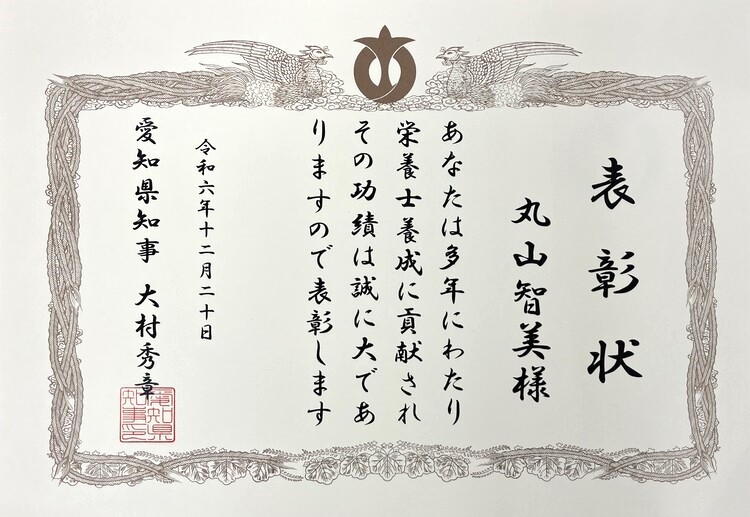 表彰状
丸山智美様
あなたは多年にわたり
栄養士養成に貢献され
その功績は誠に大であ
りますので表彰します
令和六年十二月二十日
愛知県知事 大村秀章
愛知県
知事之印